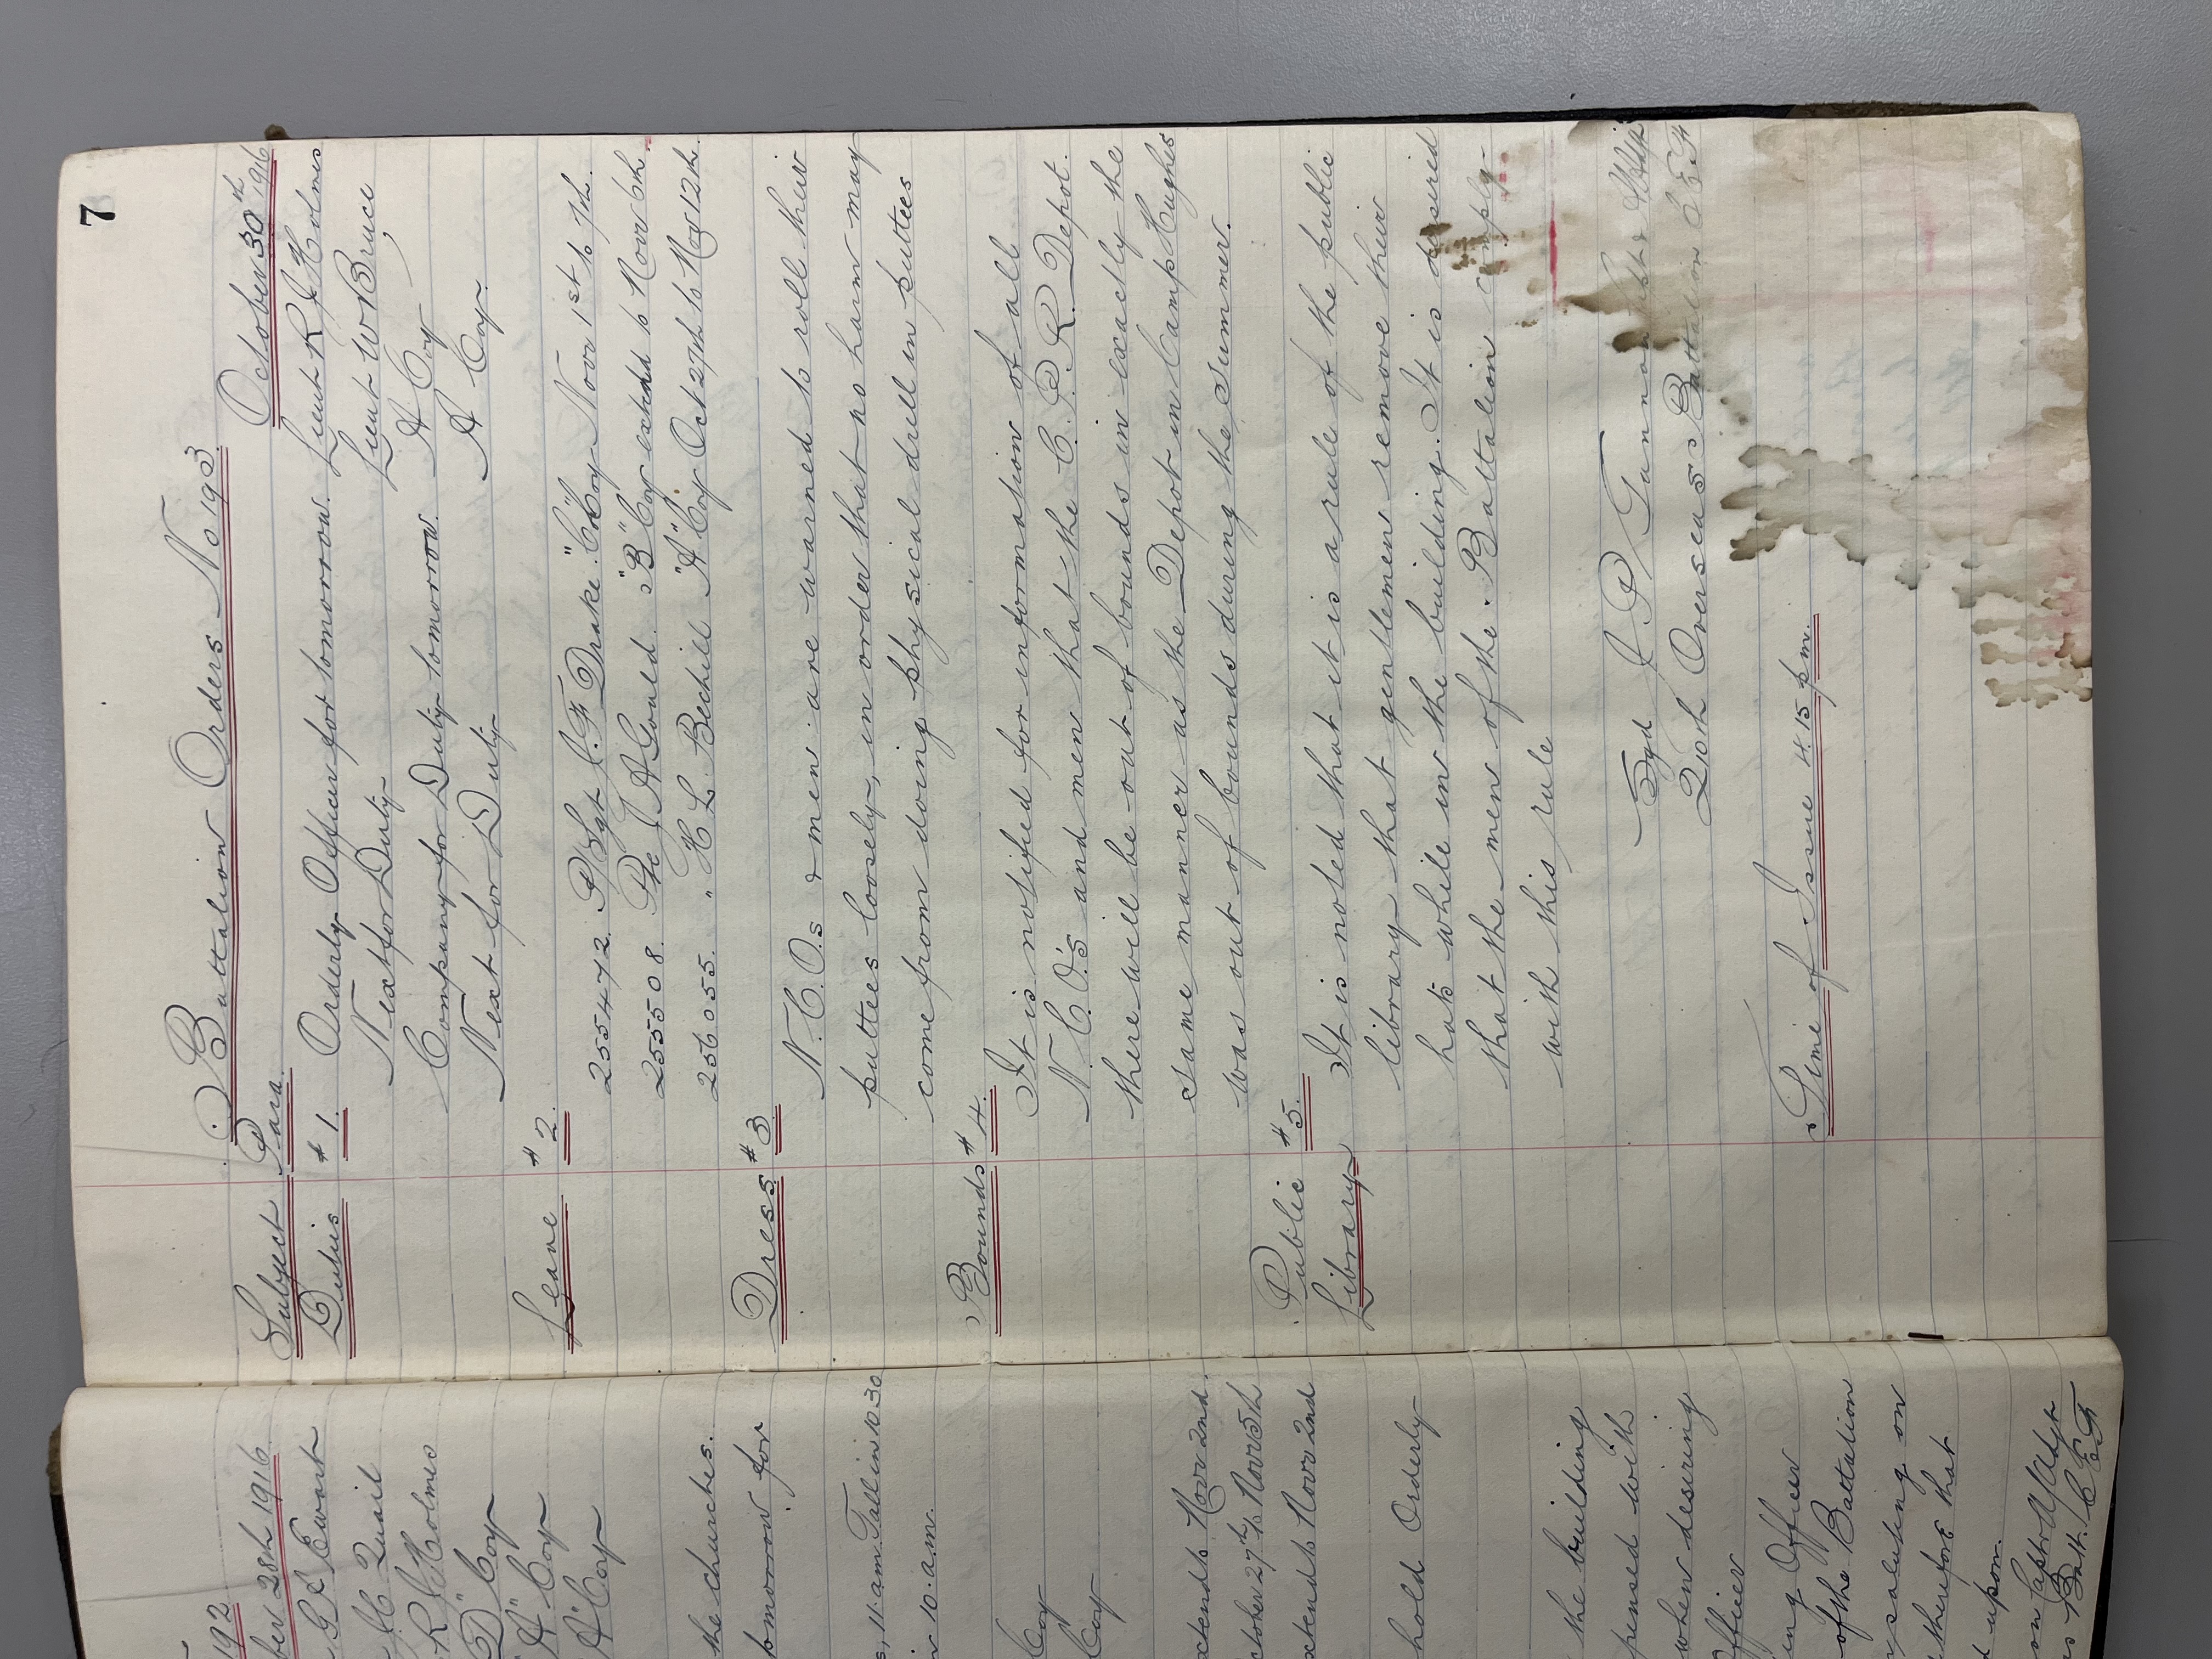 192
ber 28th 1916.
G L Ewart
C Quail
R J Holmes
D" Coy
A" Coy
A" Coy
the churches.
tomorrow for
s, 11.am Fall in 10.30
10.a.m.
Coy
Coy
extends Novr 2nd.
ctober 27th to Novr 5th
extends Novr 2nd
hold Orderly
the building
pensed with
when desiring
fficer
ing Officer
of the Battalion
saluting on
therefore that
d upon.
on Capt & A/Adjt
Batt. C E F
7
Battalion Orders No 193
Subject Para. October 30th 1916
Duties # 1. Orderly Officer for tomorrow. Lieut R J Holmes
Next for Duty Lieut W R Bruce
Company for Duty tomorrow. A Coy
Next for Duty A Coy.
Leave # 2.
255472. P/Sgt C. F Drake. "C" Coy Novr 1st to 7th.
255508. Pte J. A Gould. "B" Coy extend to Novr 6th.
256055. " H L. Bechill "A" Coy Oct 27th to Nov 12th.
Dress # 3
N. C. O.s & men are warned to roll their
puttees loosely, in order that no harm may
come from doing physical drill in puttees
Bounds # 4.
It is notified for information of all
N. C. O.'s and men that the C. P. R. Depot.
there will be out of bounds in exactly the
same manner as the Depot in Camp Hughes
was out of bounds during the Summer.
Public # 5.
Library
It is noted that it is a rule of the public
library that gentlemen remove their
hats while in the building. It is desired
that the men of the Battalion comply
with this rule
Sgd J P Gunnon Capt & A/Adjt
210th Overseas Battalion C E F
Time of Issue 4.15 pm.